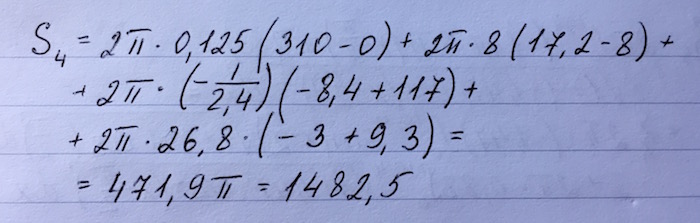 S₄ = 2π · 0,125 (310 - 0) + 2π · 8 (17,2 - 8) +
+ 2π · (- 1/2,4) (- 8,4 + 117) +
+ 2π · 26,8 · (- 3 + 9,3) =
= 471,9π = 1482,5